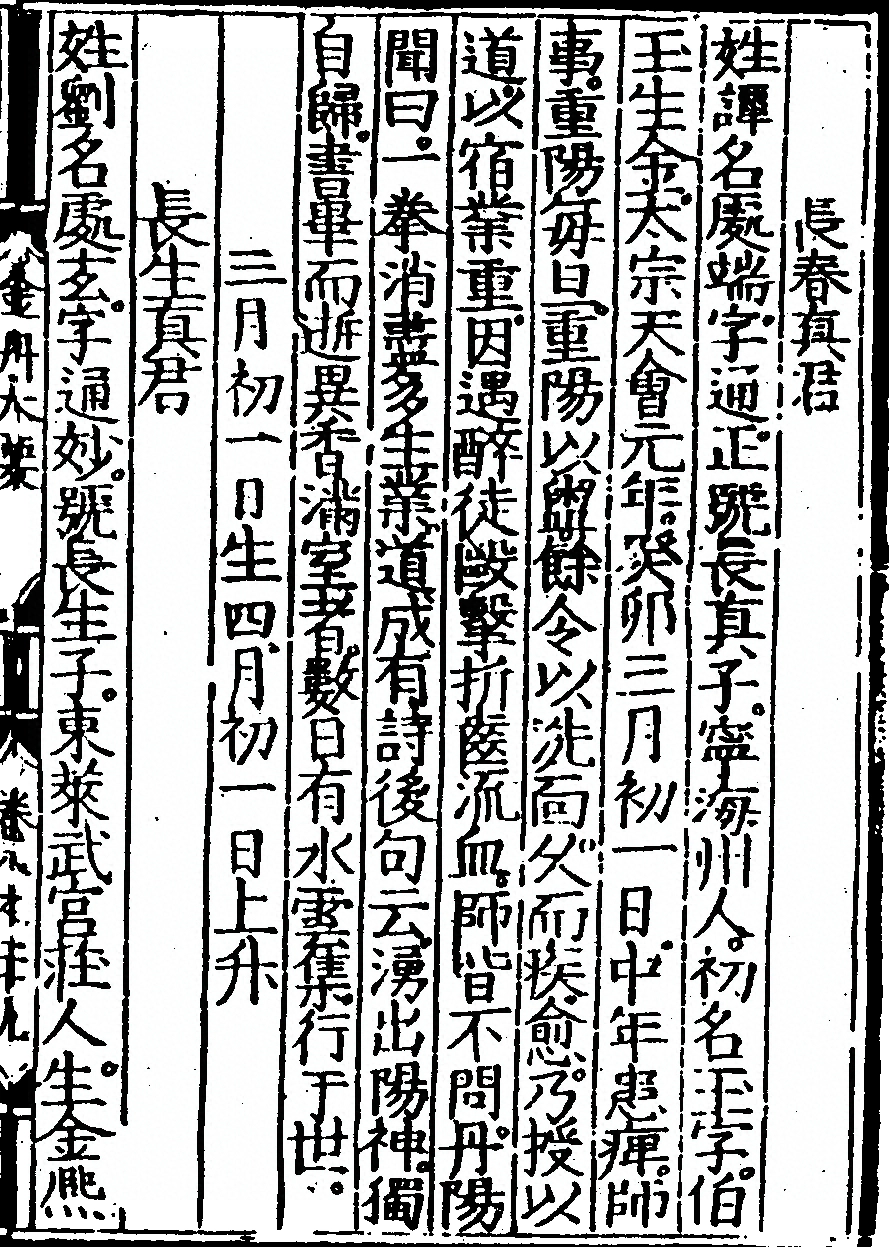 長春真君
姓譚名處端字。通正。號長真子。寧海州人。初名玉字。伯
玉生金太。宗天會元年。癸卯三月初一日。中年患痺。師
事。重陽每日。重陽以盥餘令以洗面久而疾愈。乃。授以
道。以宿業重。因遇醉徒毆擊折齒流血。師皆不問。丹陽
聞曰。一拳消盡多生業。道成有詩後句云。湧出陽神。獨
自歸。書畢而逝異香滿室者。數日有水雲集。行于世。
三月初一日生四月初一日上升
長生真君
姓劉名處玄。字通妙。號長生子。東萊武官莊人。生金熙
金丹大要